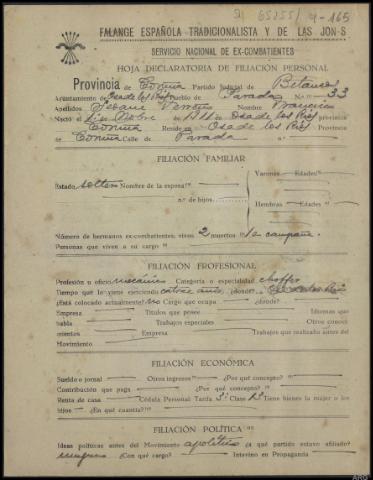 65255/4-165
FALANGE ESPAÑOLA TRADICIONALISTA Y DE LAS JON-S
SERVICIO NACIONAL DE EX-COMBATIENTES
HOJA DECLARATORIA DE FILIACIÓN PERSONAL
Provincia de Coruña Partido Judicial de Betanzos
Ayuntamiento de Oza de los Ríos Pueblo de Parada N.º 33
Apellidos Seoane Nombre Francisco
Nació el de de 1911 en Oza de los Ríos provincia
Coruña Reside en Oza de los Ríos Provincia
de Coruña Calle de Parada n.º
FILIACIÓN FAMILIAR
Varones Edades
Estado soltero Nombre de la esposa
n.º de hijos
Hembras Edades
Número de hermanos ex-combatientes, vivos 2 muertos en campaña
Personas que viven a su cargo
FILIACIÓN PROFESIONAL
Profesión u oficio mecánico Categoría o especialidad choffer
Tiempo que lo viene ejerciendo catorce años ¿dónde?
¿Está colocado actualmente? no Cargo que ocupa ¿dónde?
Empresa Títulos que posee Idiomas que
habla Trabajos especiales Otros conoci
mientos Empresa Trabajos realizados antes del
Movimiento
FILIACIÓN ECONÓMICA
Sueldo o jornal Otros ingresos ¿Por qué concepto?
Contribución que paga ¿Por qué concepto?
Renta de casa Cédula Personal Tarifa 3ª Clase 13 Tiene bienes la mujer o los
hijos ¿En qué cuantía?
FILIACIÓN POLÍTICA
Ideas políticas antes del Movimiento apolítico ¿a qué partido estuvo afiliado?
ninguno ¿Con qué cargo? Intervino en Propaganda